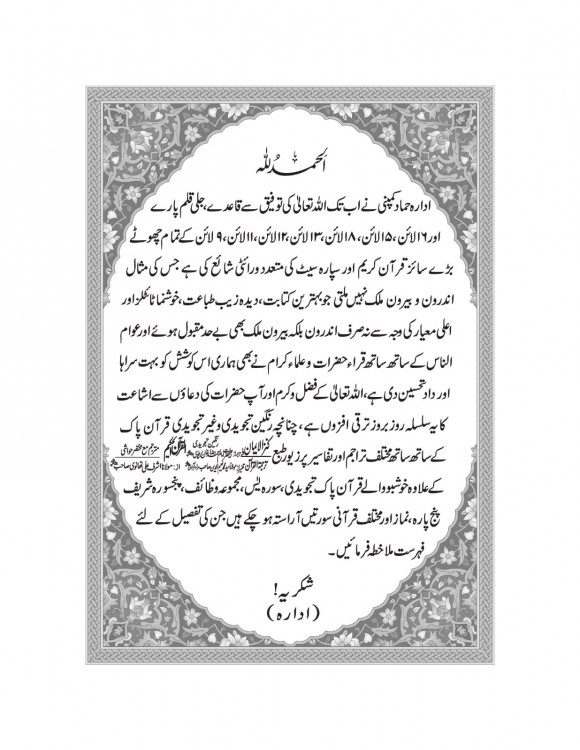 الحمد للہ
ادارہ حماد کمپنی نے اب تک اللہ تعالیٰ کی توفیق سے قاعدے، جلی قلم پارے
اور ۱۶ لائن، ۱۵ لائن، ۱۸ لائن، ۱۳ لائن، ۱۲ لائن، ۱۱ لائن، ۹ لائن کے تمام چھوٹے
بڑے سائز قرآن کریم اور سپارہ سیٹ کی متعدد ورائٹی شائع کی ہے جس کی مثال
اندرون و بیرون ملک نہیں ملتی جو بہترین کتابت، دیدہ زیب طباعت، خوشنما ٹائٹلز اور
اعلیٰ معیار کی وجہ سے نہ صرف اندرون بلکہ بیرون ملک بھی بے حد مقبول ہوئے اور عوام
الناس کے ساتھ ساتھ قراء حضرات و علماء کرام نے بھی ہماری اس کوشش کو بہت سراہا
اور داد تحسین دی ہے، اللہ تعالیٰ کے فضل و کرم اور آپ حضرات کی دعاؤں سے اشاعت
کا یہ سلسلہ روز بروز ترقی افزوں ہے، چنانچہ رنگین تجویدی و غیر تجویدی قرآن پاک
کے ساتھ ساتھ مختلف تراجم اور تفاسیر پر زیور طبع کنز الایمان رنگین تجویدی القرآن الحکیم مترجم مع مختصر حواشی از: مولانا اشرف علی تھانوی صاحب
کے علاوہ خوشبو والے قرآن پاک تجویدی، سورہ یٰس، مجموعہ وظائف، پنجسورہ شریف
پنج پارہ، نماز اور مختلف قرآنی سورتیں آراستہ ہو چکے ہیں جن کی تفصیل کے لئے
فہرست ملاحظہ فرمائیں۔
شکریہ!
(ادارہ)